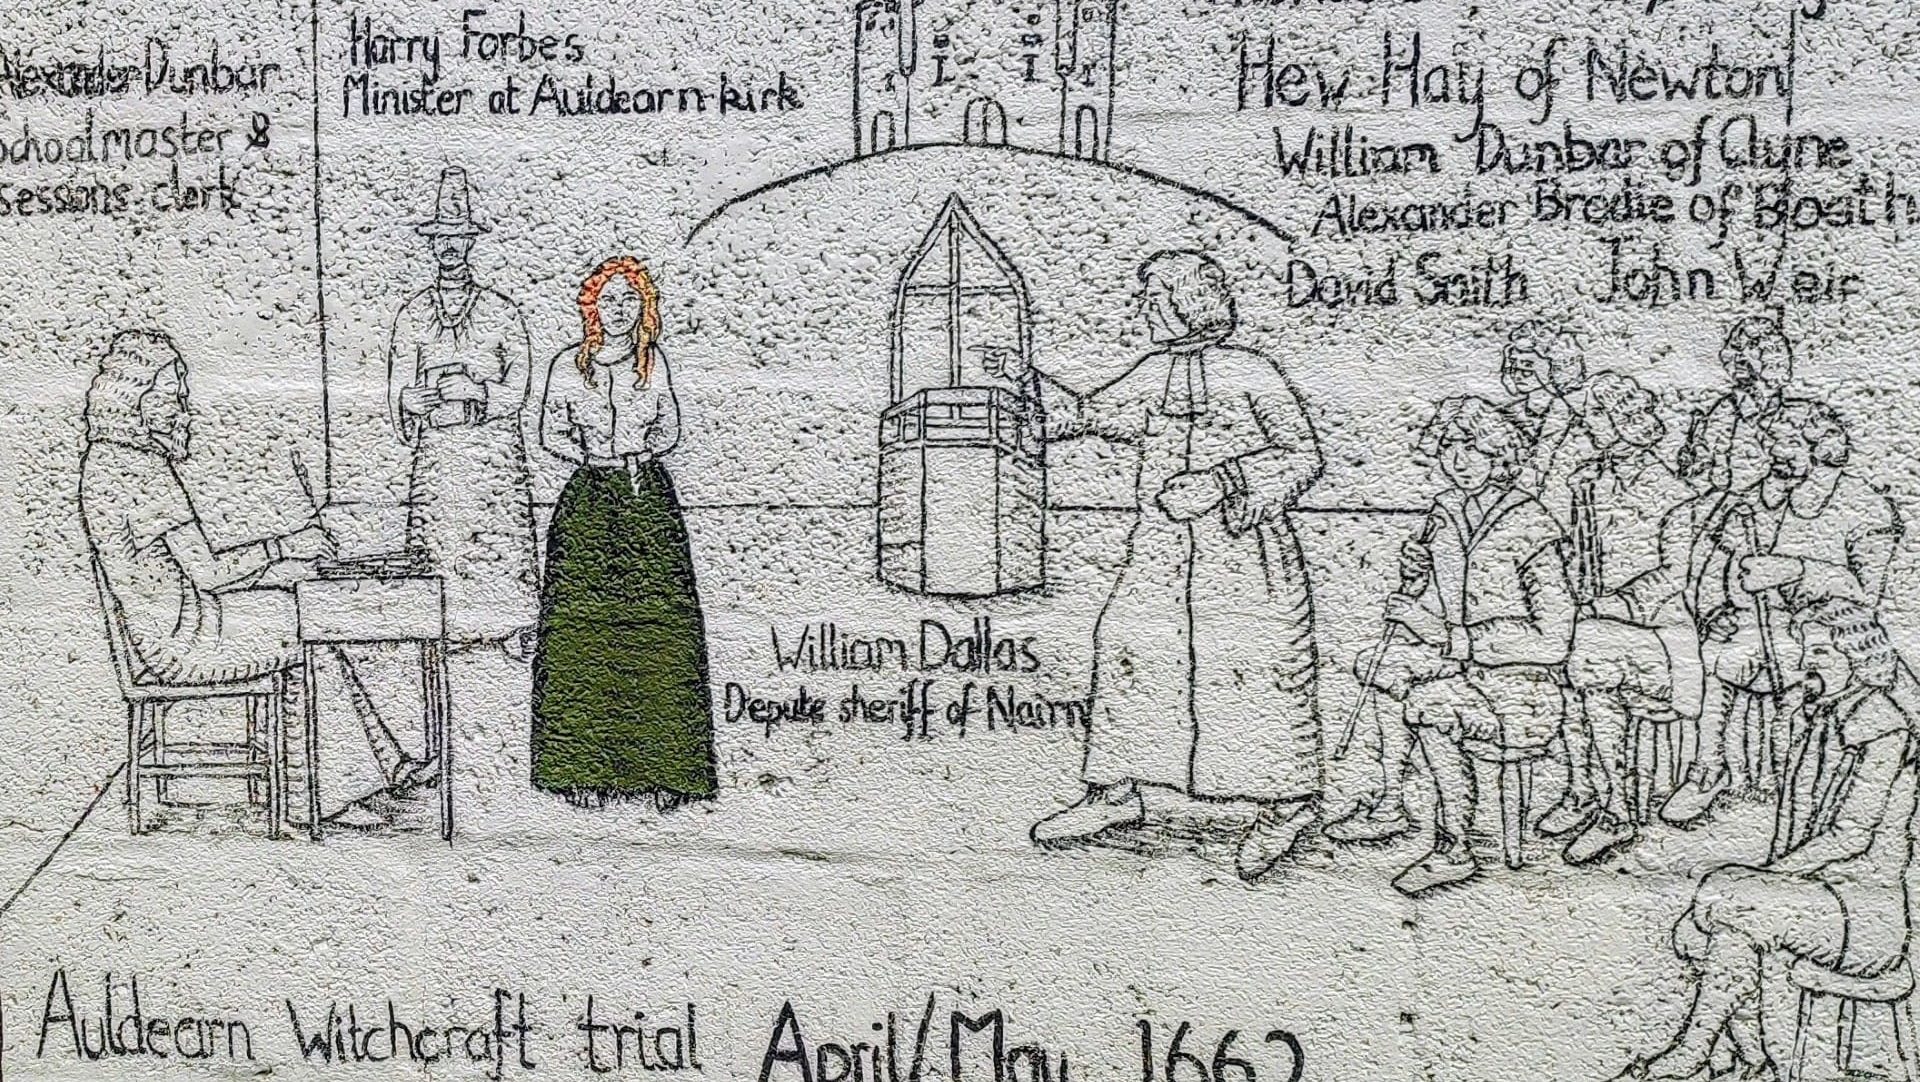 Alexander Dunbar
Schoolmaster &
sessions clerk
Harry Forbes
Minister at Auldearn kirk
Hew Hay of Newton
William Dunbar of Clyne
Alexander Brodie of Boath
David Smith John Weir
William Dallas
Depute sheriff of Nairn
Auldearn Witchcraft trial April/May 1662